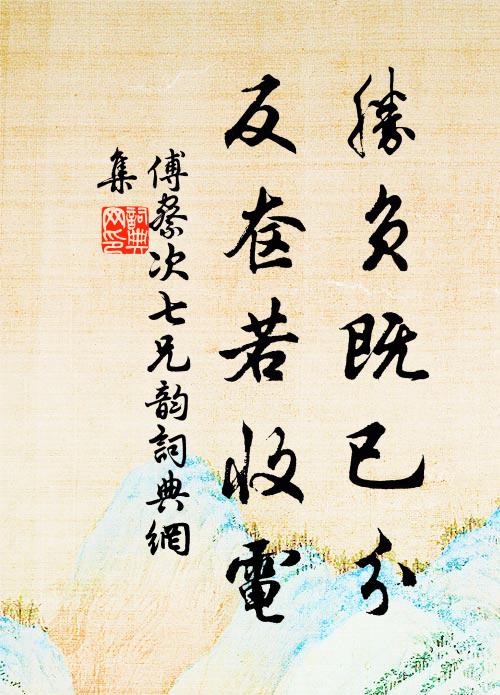 勝負既已分
反奁若收電
傅察次七兄韵詞典網
集
詞典
网印